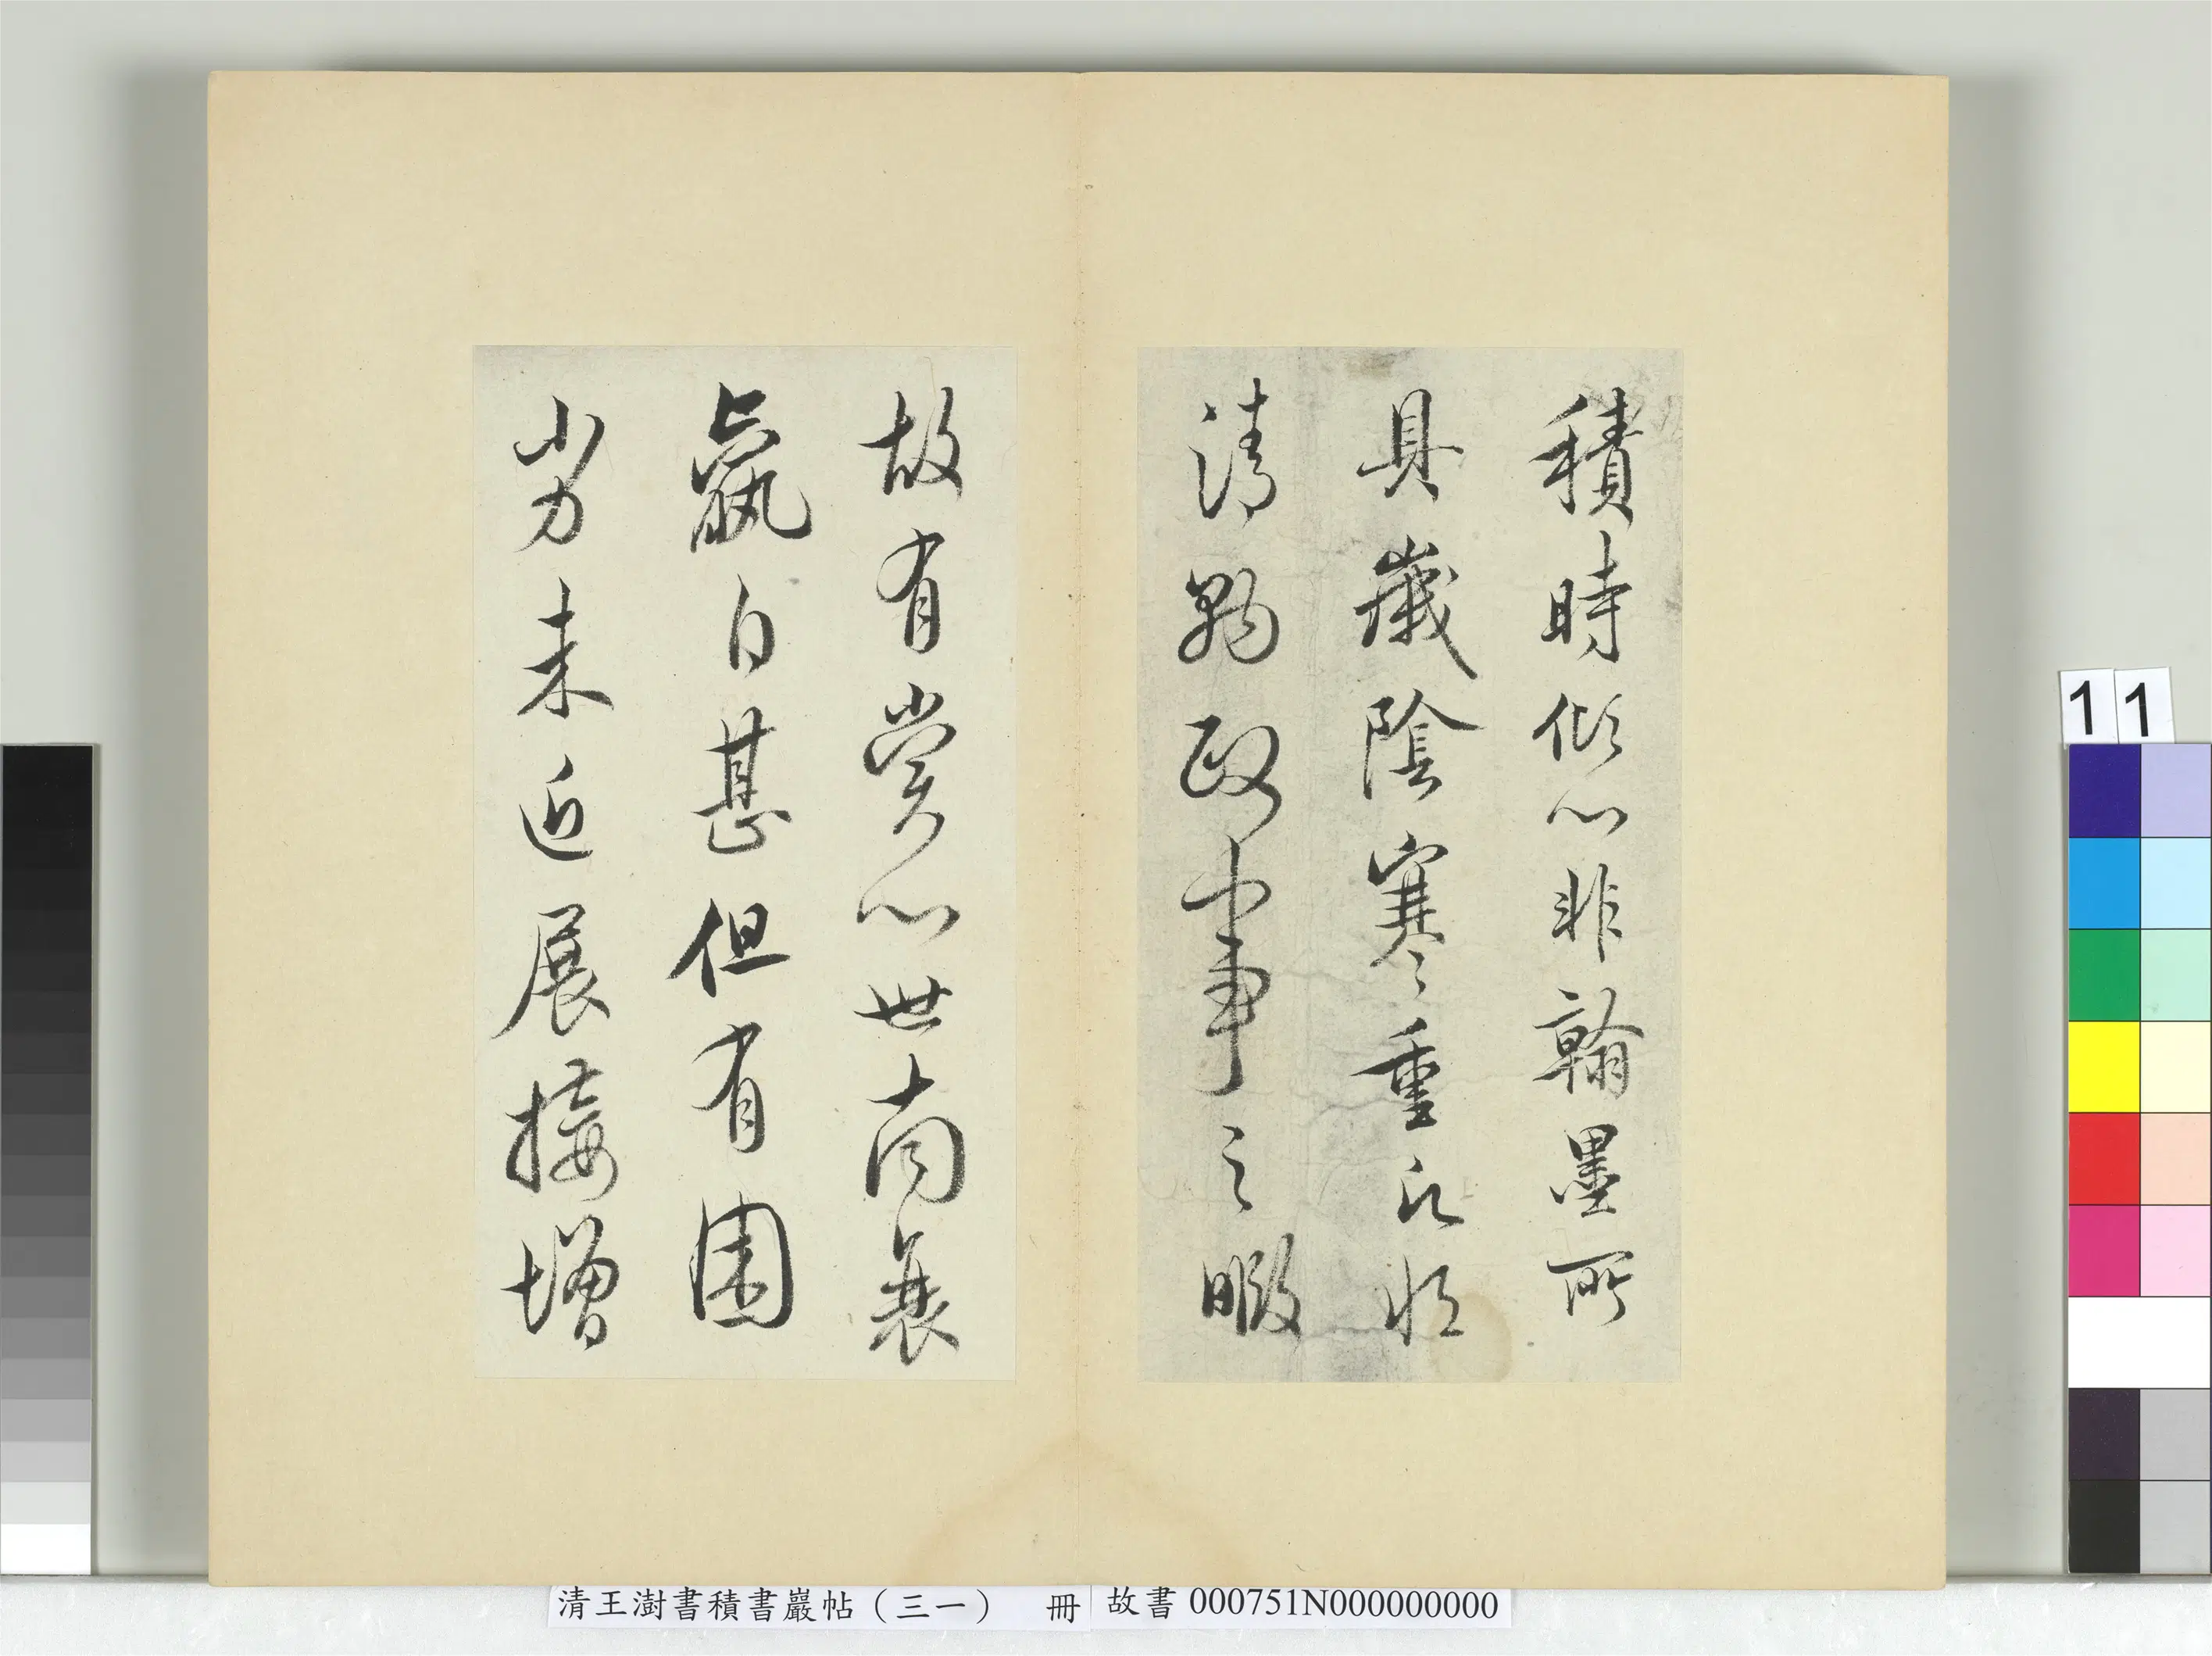 積時傾心非翰墨所
具歲陰寒重比將
清勉政事之暇
故有賞心世南衰
羸日甚但有困
劣未近展接增
11
清王澍書積書巖帖(三一) 冊 故書 000751N000000000